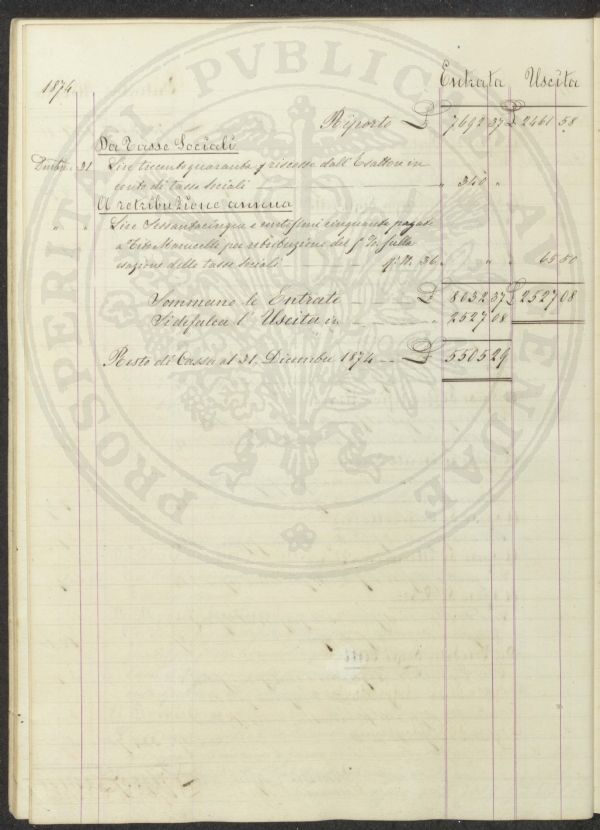 PROSPERITATI PVBLICAE AVGENDAE
1874 Entrata Uscita
Riporto £ 7692 37 £ 2461 58
Da Tasse Sociali
Dicembre 31 Lire trecentoquaranta riscosse dall'Esattore in
conto di tasse sociali " 340 "
A retribuzione annua
" " Lire Sessantacinque e centesimi cinquanta pagate
a Tito Marucelli per retribuzione del sulla
esazione delle tasse sociali N. 36 " " " 65 50
Sommano le Entrate £ 8032 37 £ 2527 08
Si difalca l'Uscita in " 2527 08
Resto di Cassa al 31. Dicembre 1874 £ 5505 29